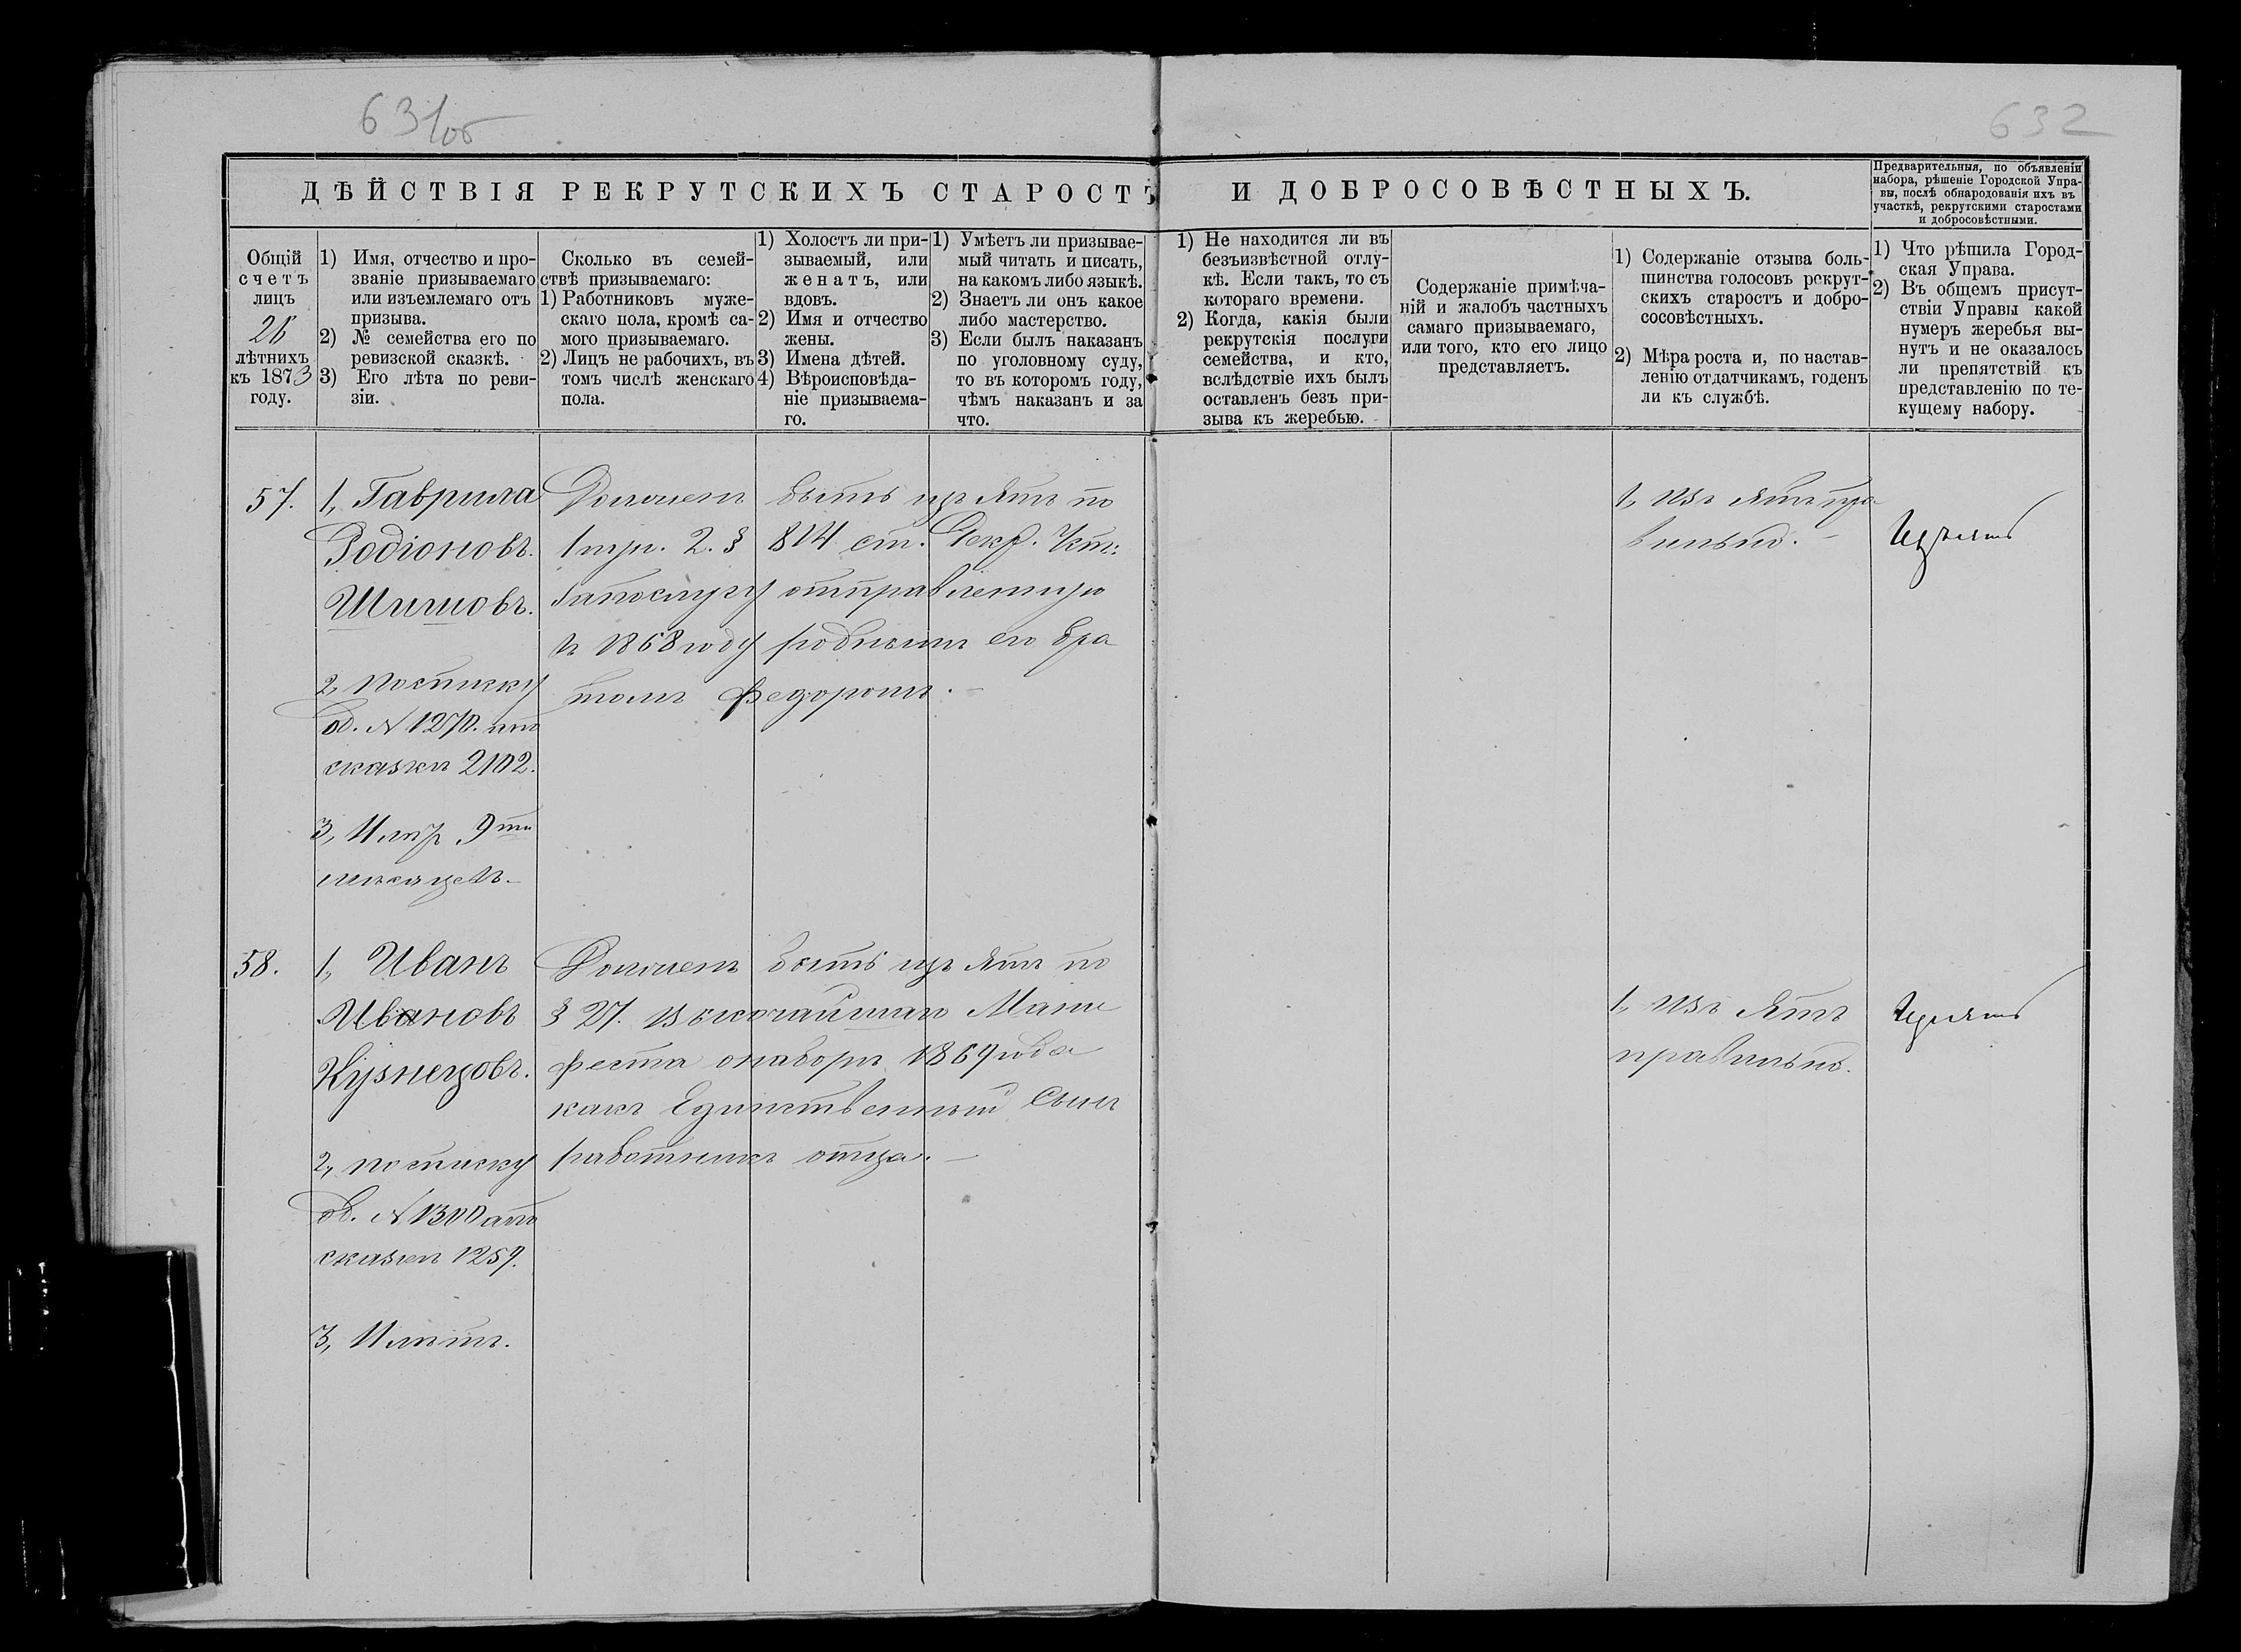 631об
632
ДѢЙСТВІЯ РЕКРУТСКИХЪ СТАРОСТЪ И ДОБРОСОВѢСТНЫХЪ.
Предварительныя, по объявленіи
набора, рѣшеніе Городской Упра-
вы, послѣ обнародованія ихъ въ
участкѣ, рекрутскими старостами
и добросовѣстными.
Общій
счетъ
лицъ
26
лѣтнихъ
къ 1873
году.
1) Имя, отчество и про-
званіе призываемаго
или изъемлемаго отъ
призыва.
2) № семейства его по
ревизской сказкѣ.
3) Его лѣта по реви-
зіи.
Сколько въ семей-
ствѣ призываемаго:
1) Работниковъ муже-
скаго пола, кромѣ са-
мого призываемаго.
2) Лицъ не рабочихъ, въ
томъ числѣ женскаго
пола.
1) Холостъ ли при-
зываемый, или
женатъ, или
вдовъ.
2) Имя и отчество
жены.
3) Имена дѣтей.
4) Вѣроисповѣда-
ніе призываема-
го.
1) Умѣетъ ли призывае-
мый читать и писать,
на какомъ либо языкѣ.
2) Знаетъ ли онъ какое
либо мастерство.
3) Если былъ наказанъ
по уголовному суду,
то въ которомъ году,
чѣмъ наказанъ и за
что.
1) Не находится ли въ
безъизвѣстной отлу-
кѣ. Если такъ, то съ
котораго времени.
2) Когда, какія были
рекрутскія послуги
семейства, и кто,
вслѣдствіе ихъ былъ
оставленъ безъ при-
зыва къ жеребью.
Содержаніе примѣча-
ній и жалобъ частныхъ
самаго призываемаго,
или того, кто его лицо
представляетъ.
1) Содержаніе отзыва боль-
шинства голосовъ рекрут-
скихъ старостъ и добро-
сосовѣстныхъ.
2) Мѣра роста и, по настав-
ленію отдатчикамъ, годенъ
ли къ службѣ.
1) Что рѣшила Город-
ская Управа.
2) Въ общемъ присут-
ствіи Управы какой
нумеръ жеребья вы-
нутъ и не оказалось
ли препятствій къ
представленію по те-
кущему набору.
57.
1, Гаврила
Родіоновъ
Шишовъ.
2, по списку
об. N 1270. апо
сказкѣ 2102.
3, 11 лѣтъ 9ти
мѣсяцевъ.
Долженъ быть изъятъ по
1 пун. 2. § 814 ст. Рекр. Уст:
запослугу отправленную
въ 1868 году роднымъ его бра
томъ Федоромъ.
1, изъятъ пра
вильно.
Изъять
58.
1, Иванъ
Ивановъ
Кузнецовъ.
2, по списку
об. N 1300 апо
сказкѣ 1259.
3, 11 лѣтъ.
Долженъ быть изъятъ по
§ 27. Высочайшаго Мани
феста о наборѣ 1869 года
какъ Единственный Сынъ
работникъ отца.
1, изъ ятъ
правильно.
Изъять